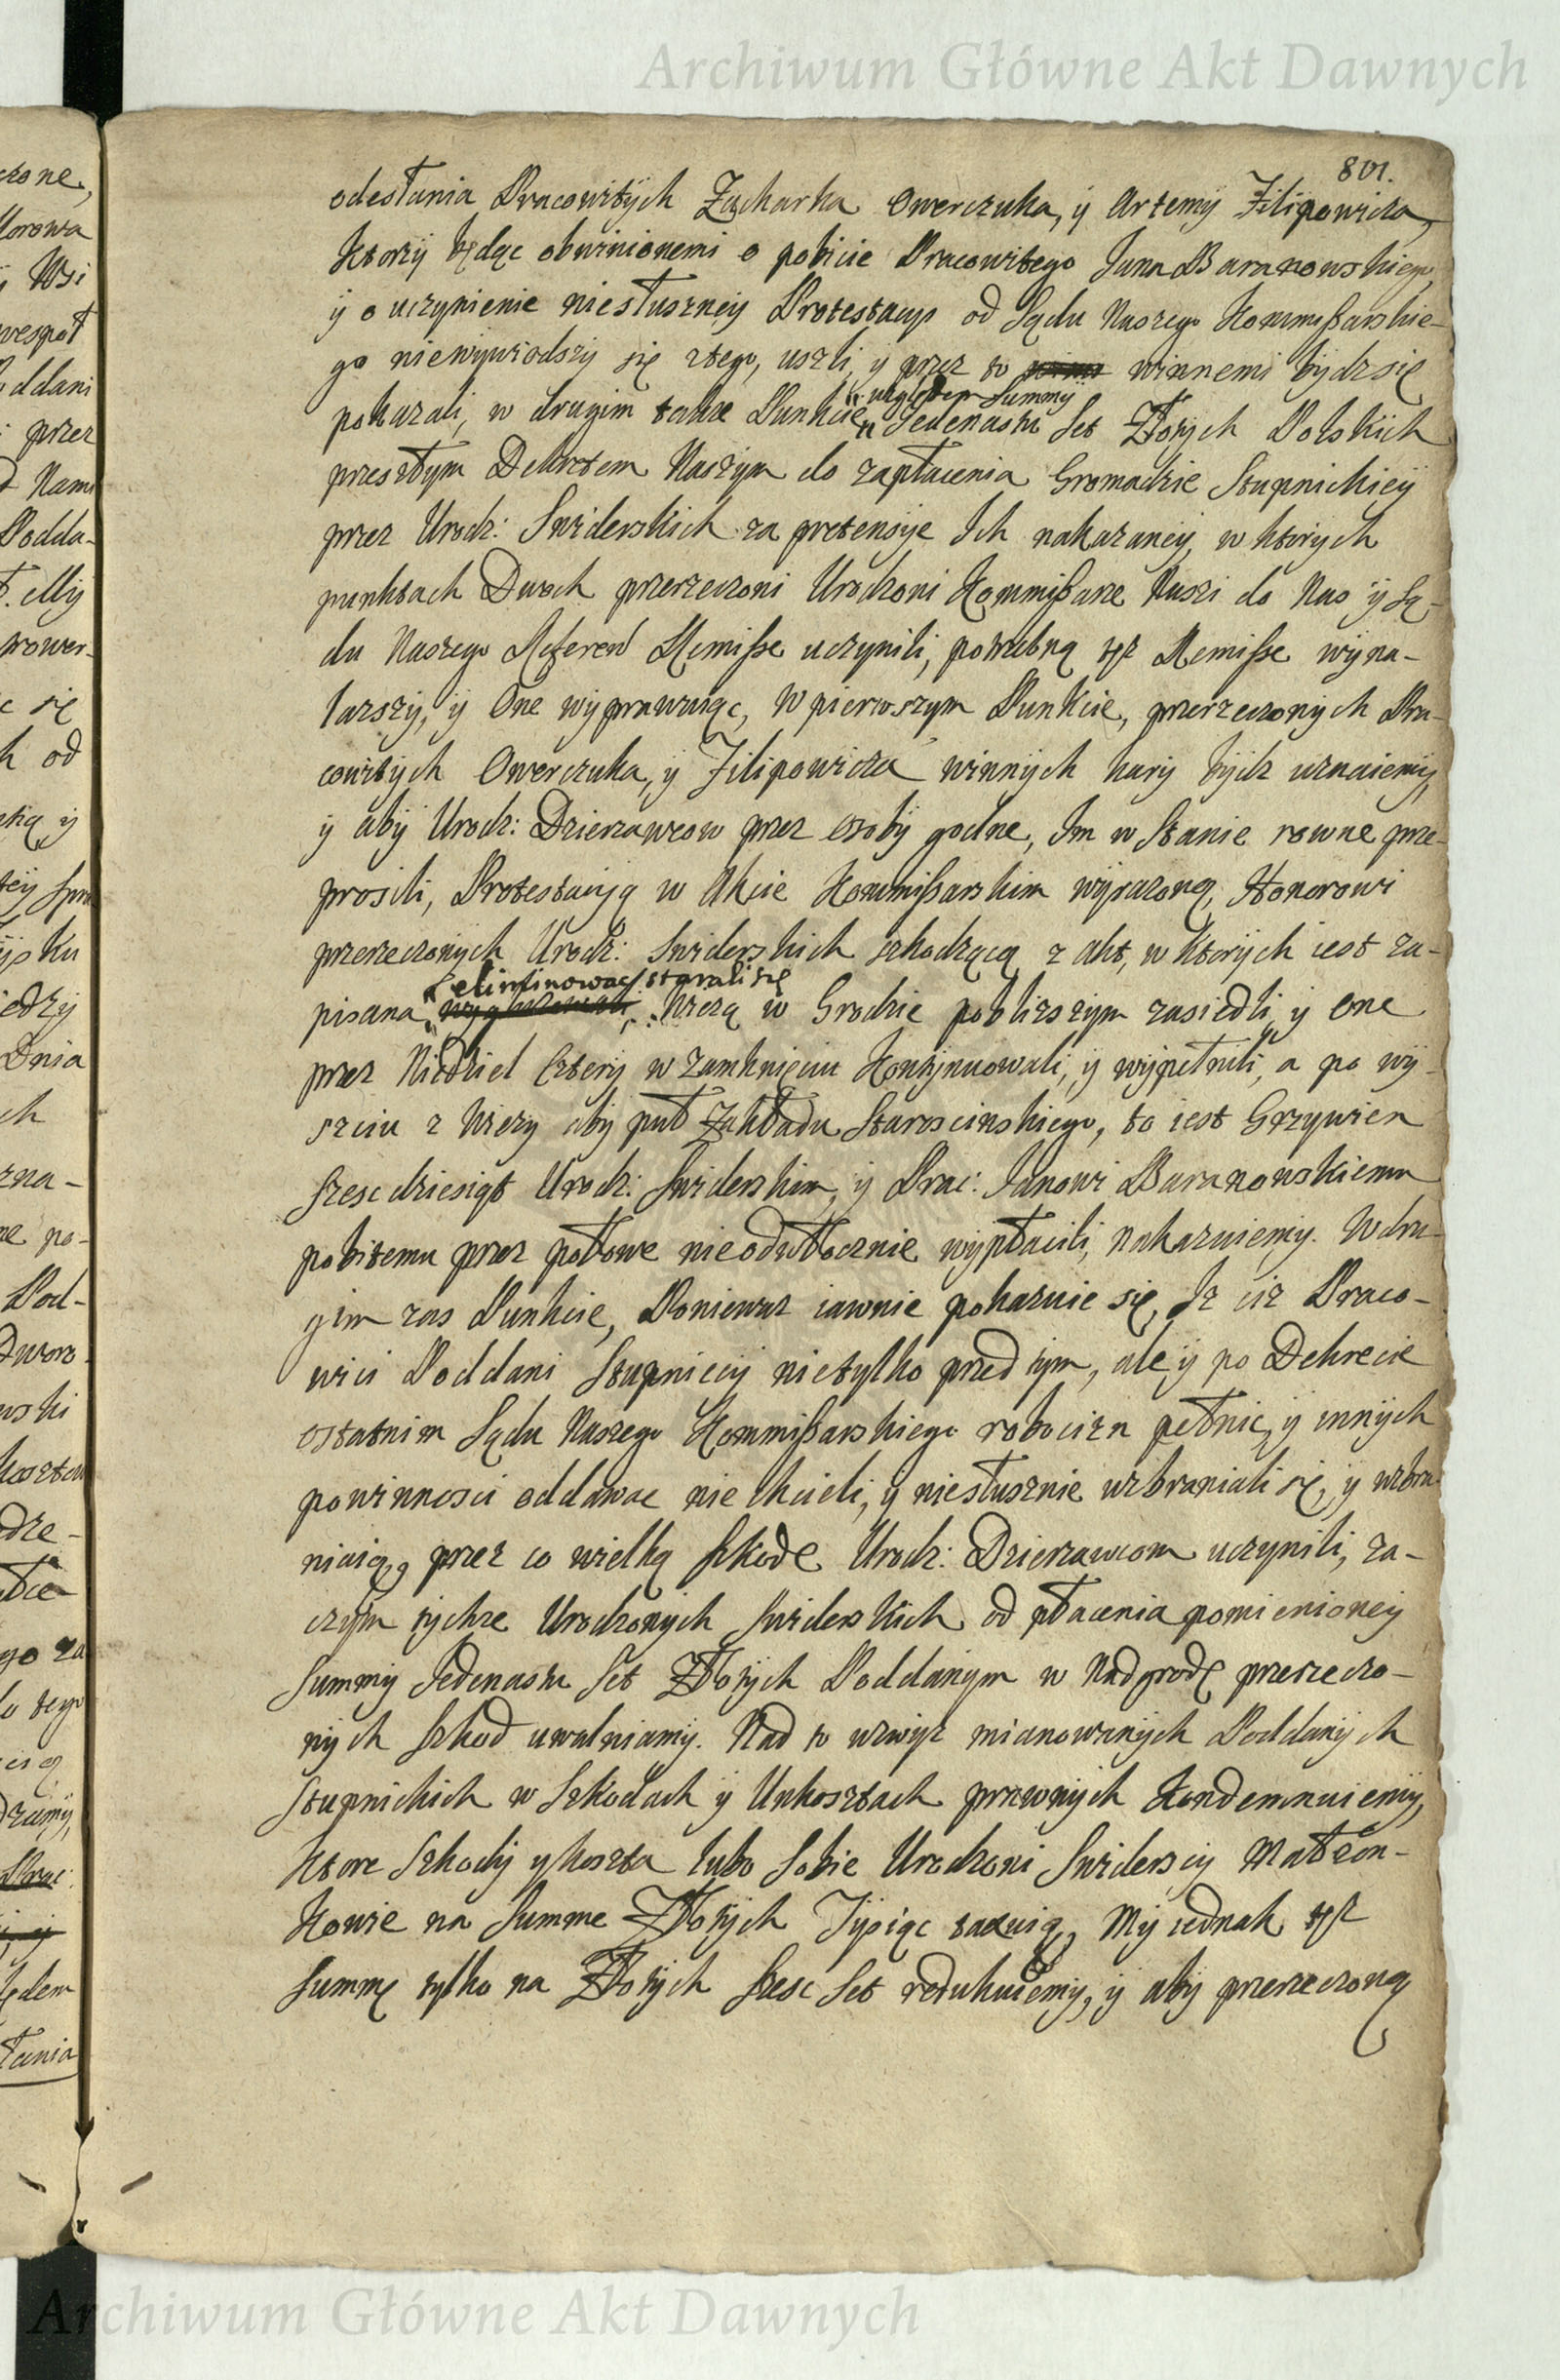 Archiwum Główne Akt Dawnych
801.
odesłania Pracowitych Zacharka Owerczuka, y Artemy Filipowicza,
Ktorzy będąc obwinionemi o pobicie Pracowitego Jana Baranowskiego,
y o uczynienie niesłuszney Protestacyi od Sądu Naszego Kommissarskie-
go niewywiodszy się ztego, uszli, y przez to winnemi bydz się
pokazali, w drugim takze Punkcie względem Summy Jedenastu Set Złotych Polskich
przeszłym Dekretem Naszym do zapłacenia Gromadzie Stupnickiey
przez Urodz: Swiderskich za pretensye Ich nakazaney, w ktorych
punktach Dwoch przerzeczoni Urodzoni Kommissarze Nasi do Nas y Są-
du Naszego Referen Remisse uczynili, potrzebną tęż Remisse wyna-
lazszy, y One wyprawuiąc, W pierwszym Punkcie, przerzeczonych Pra-
cowitych Owerczuka, y Filipowicza winnych kary bydz uznaiemy,
y aby Urodz: Dzierzawcow przez osoby godne, Im w Stanie rowne prze-
prosili, Protestacyją w Akcie Kommissarskim wyrazoną, Honorowi
przerzeczonych Urodz: Swiderskich szkodzącą z akt, w ktorych iest za-
pisana eliminowac starali się Wiezą w Grodzie pobliszszym zasiedli, y one
przez Niedziel Cztery w zamknięciu Kontynuowali, y wypełnili, a po wy-
szciu z Wiezy aby puł Zakładu Staroscinskiego, to iest Grzywien
szescdziesiąt Urodz: Swiderskim, y Prac: Janowi Baranowskiemu
pobitemu przez połowe nieodwłocznie wypłacili, nakazuiemy. W dru-
gim zas Punkcie, Poniewaz iawnie pokazuie się, Iz ciz Praco-
wici Poddani Stupniccy nietylko przed tym, ale y po Dekrecie
ostatnim Sądu Naszego Kommissarskiego robocizn pełnic, y innych
powinnosci oddawac nie chcieli, y niesłusznie wzbraniali się, y wzbra-
niaią, przez co wielką szkode Urodz: Dzierzawcom uczynili, za-
czym tychze Urodzonych Swiderskich od płacenia pomienioney
Summy Jedenastu Set Złotych Poddanym w Nadgrodę przerzeczo-
nych szkod uwalniamy. Nad to wzwyz mianowanych Poddanych
Stupnickich w Szkodach y Unkosztach prawnych Kondemnuiemy,
Ktore Szkody y koszta lubo Sobie Urodzoni Swiderscy Małzon-
kowie na Summe Złotych Tysiąc taxuią, My iednak tęz
Summę tylko na Złotych szesc Set redukuiemy, y aby przerzeczoną
Archiwum Główne Akt Dawnych